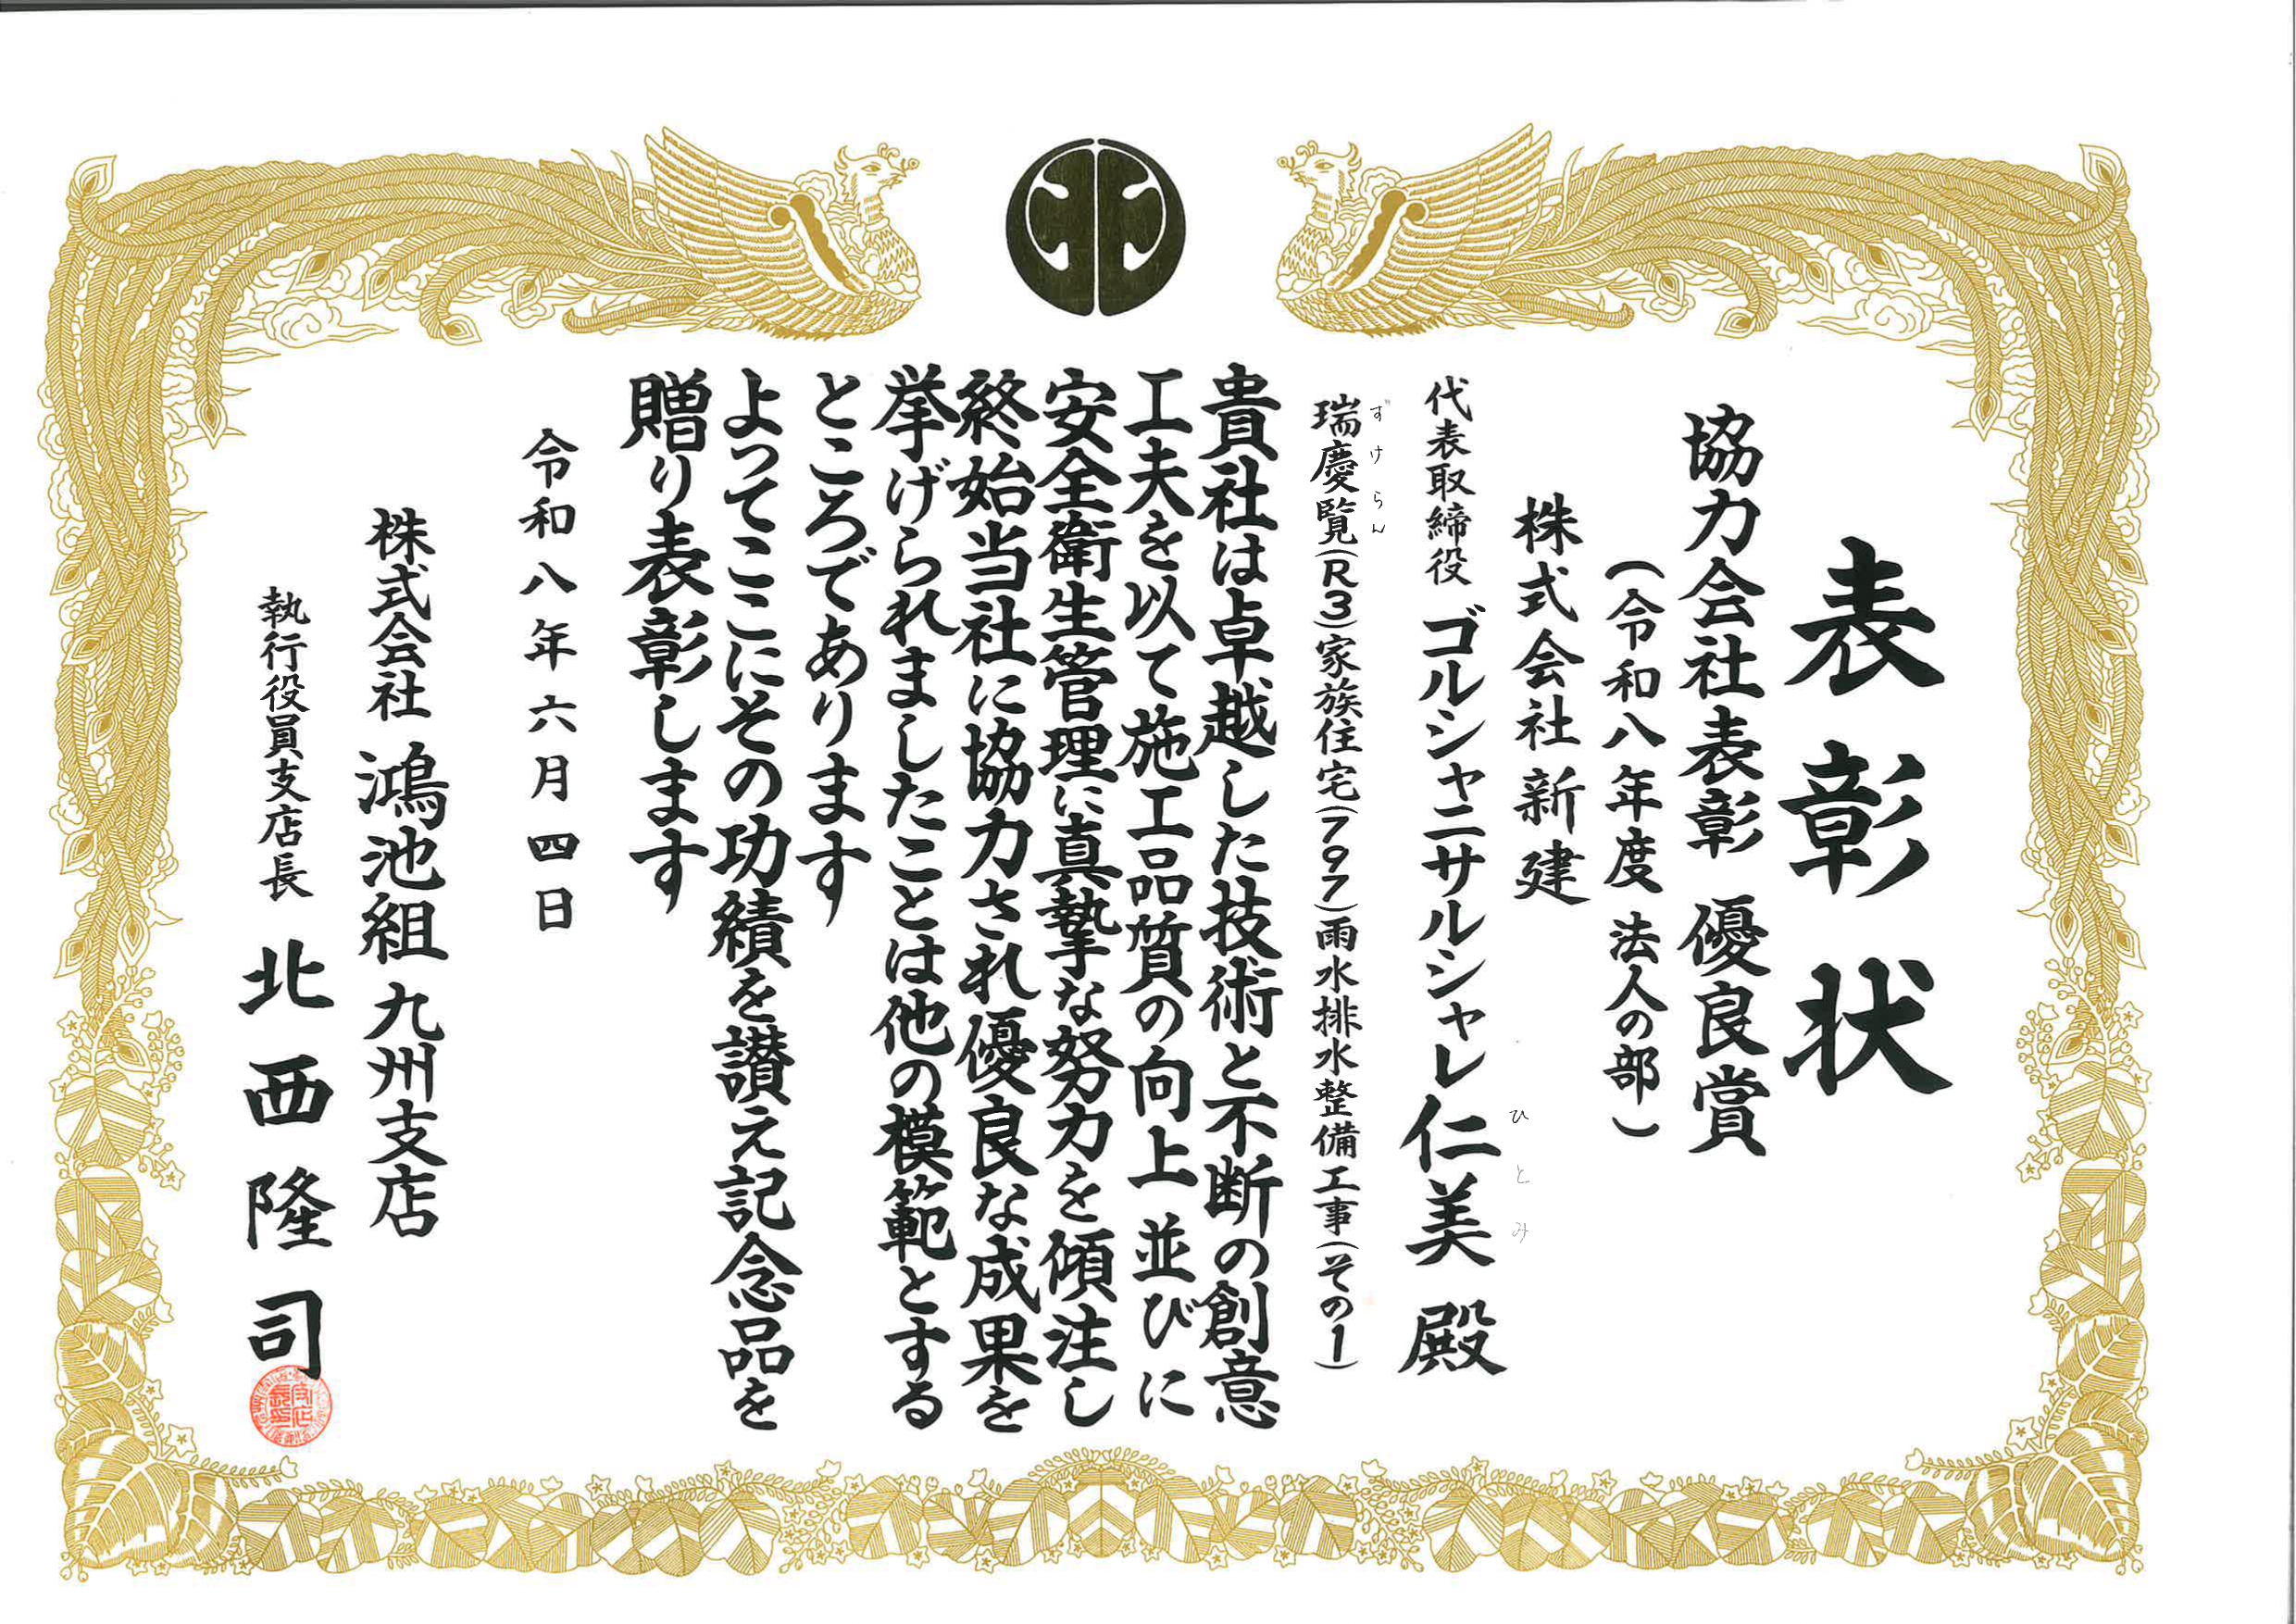 表彰状
協力会社表彰 優良賞
(令和八年度 法人の部)
株式会社 新建
代表取締役 ゴルシャニサルシャレ仁美 殿
ひとみ
瑞慶覧(R3)家族住宅(797)雨水排水整備工事(その1)
ずけらん
貴社は卓越した技術と不断の創意
工夫を以て施工品質の向上 並びに
安全衛生管理に真摯な努力を傾注し
終始当社に協力され優良な成果を
挙げられましたことは他の模範とする
ところであります
よってここにその功績を讃え記念品を
贈り表彰します
令和八年六月四日
株式会社 鴻池組 九州支店
執行役員支店長 北西隆司